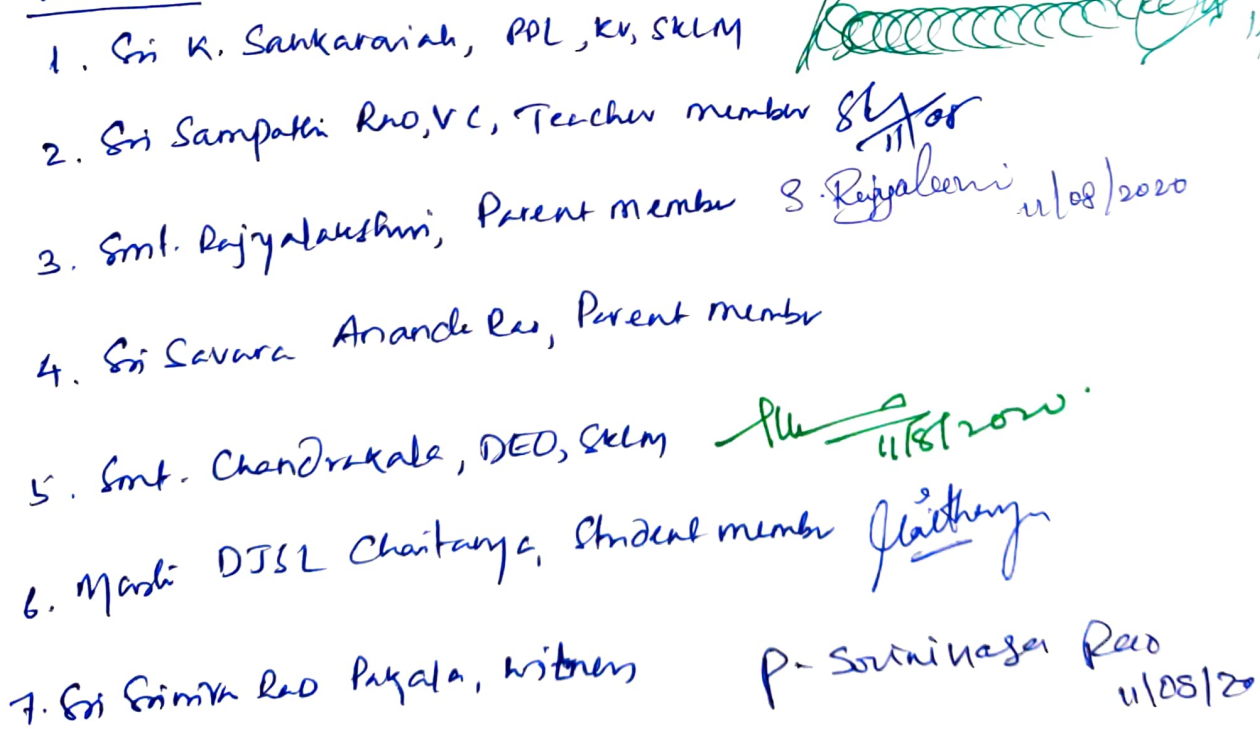 1. Sri K. Sankaraiah, PPL, KV, SKLM
2. Sri Sampathi Rao, VC, Teacher member 11/08
3. Smt. Rajyalakshmi, Parent member S. Rajyaleemi 11/08/2020
4. Sri Savara Ananda Rao, Parent member
5. Smt. Chandrakala, DEO, SKLM 11/8/2020.
6. DJSL Chaitanya, Student member
7. Sri Rao Pakala, witness P. Rao 11/08/20